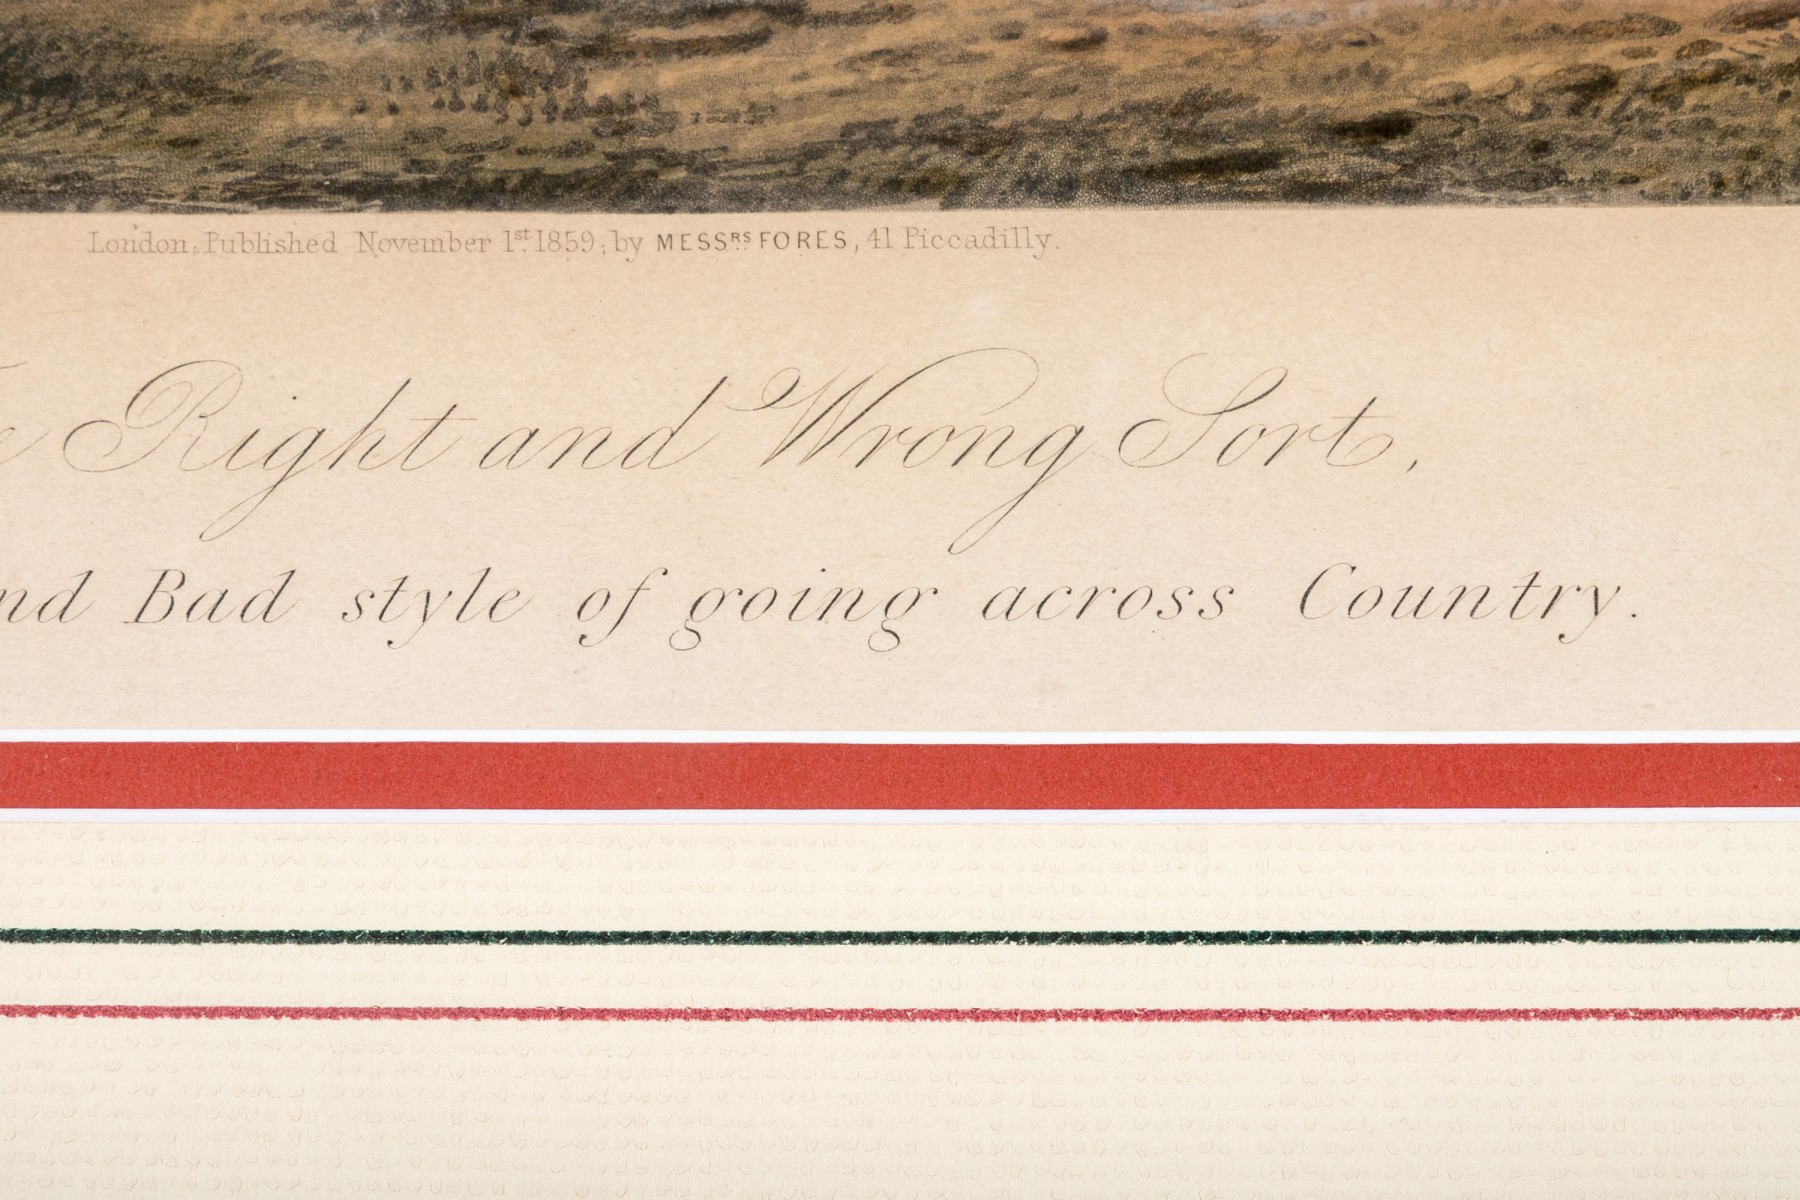 London, Published November 1st 1859, by MESSRS FORES, 41 Piccadilly.
Right and Wrong Sort,
nd Bad style of going across Country.